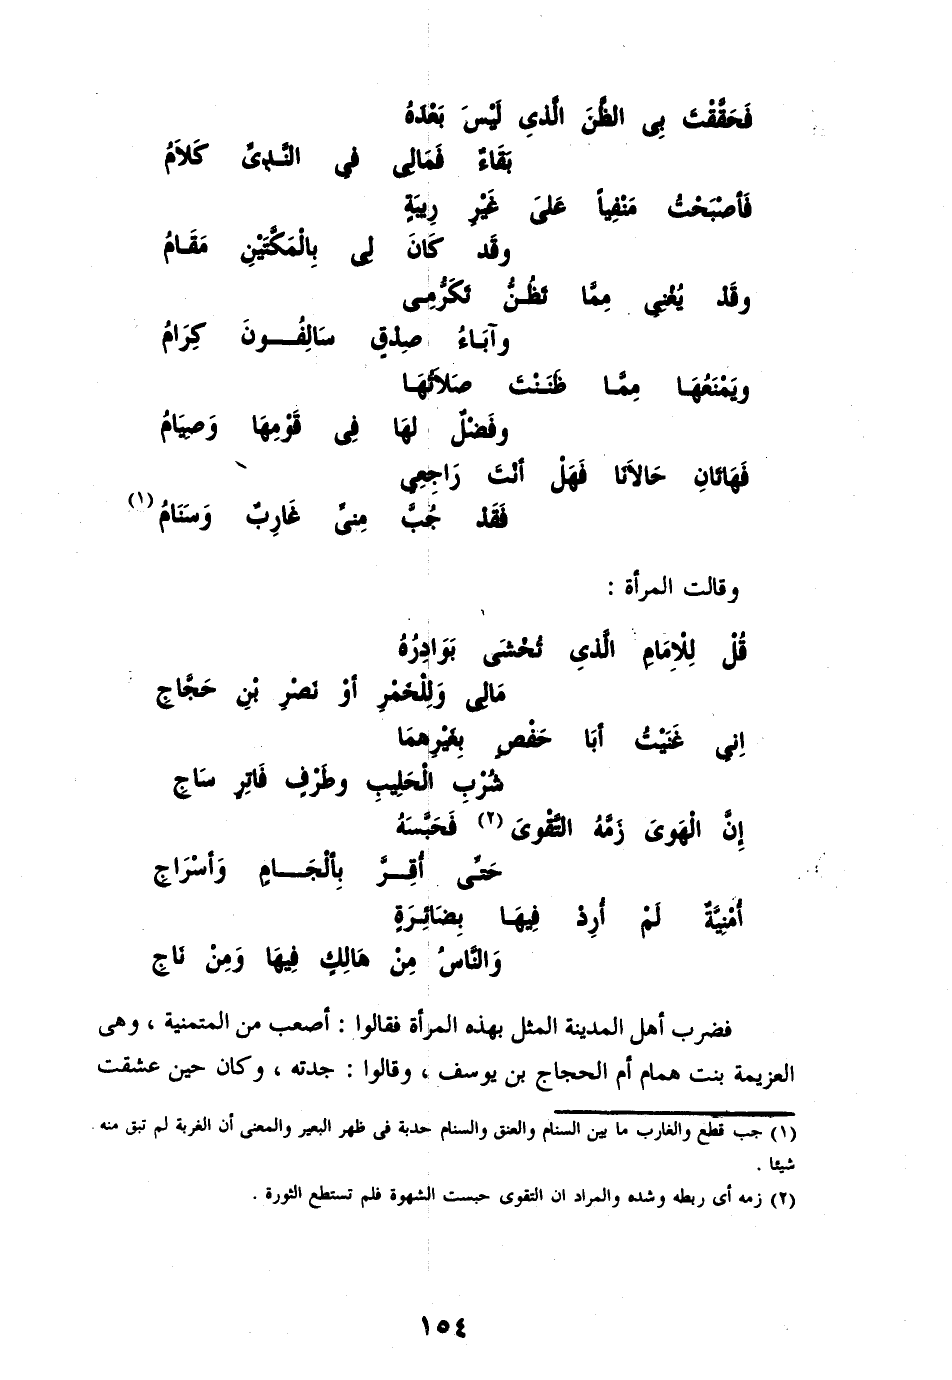 فَحَقَّقْتَ بِى الظَّنَ الَّذىِ لَيْسَ بَعْدَهُ
بَقَاءٌ فَمَالِى في النَّدِىِّ كَلاَمُ
فَأصْبَحْتُ مَنْفِياً عَلىَ غَيْرِ رِيبَةٍ
وقَد كَانَ لِى بِالْمَكَّتَيْنِ مَقَامُ
وقَدْ يُغْنِي مِمَّا تَظُنُّ تَكَرُّمِى
وآبَاءُ صِدْقٍ سَالِفُونَ كِرَامُ
ويَمْنَعُهَا مِمَّا ظَنَنْتَ صَلاَتُهَا
وفَضْلٌ لهَا فِى قَوْمِهَا وَصِيَامُ
فَهَاتَانِ حَالاَتَا فَهَلْ أنْتَ رَاجِعِي
فَقَدْ جُبَّ مِنىِّ غَارِبٌ وَسَنَامُ (١)
وقالت المرأة :
قُلْ لِلْاِمَامِ الَّذىِ تُخْشَى بَوَادِرُهُ
مَالِى وَلِلْخَمْرِ أوْ نَصْرِ بْنِ حَجَّاجِ
اِني غَنَيْتُ أبَا حَفْصٍ بِغَيْرِهمَا
شُرْبِ الْحَلِيبِ وطَرْفٍ فَاتِرٍ سَاجِ
إِنَّ الْهَوىَ زَمَّهُ التَّقْوىَ (٢) فَحَبَّسَهُ
حَتىِّ أُقِرَّ بِألْجَامٍ وَأسْرَاجِ
أُمْنِيَّةٌ لَمْ أُرِدْ فِيهَا بِضَائِرَةٍ
وَالنَّاسُ مِنْ هَالِكٍ فِيهَا وَمِنْ نَاجِ
فضرب أهل المدينة المثل بهذه المرأة فقالوا : أصعب من المتمنية ، وهى
العزيمة بنت همام أم الحجاج بن يوسف ، وقالوا : جدته ، وكان حين عشقت
(١) جب قطع والغارب ما بين السنام والعنق والسنام حدبة فى ظهر البعير والمعنى أن الغربة لم تبق منه
شيئا .
(٢) زمه أى ربطه وشده والمراد ان التقوى حبست الشهوة فلم تستطع الثورة .
١٥٤